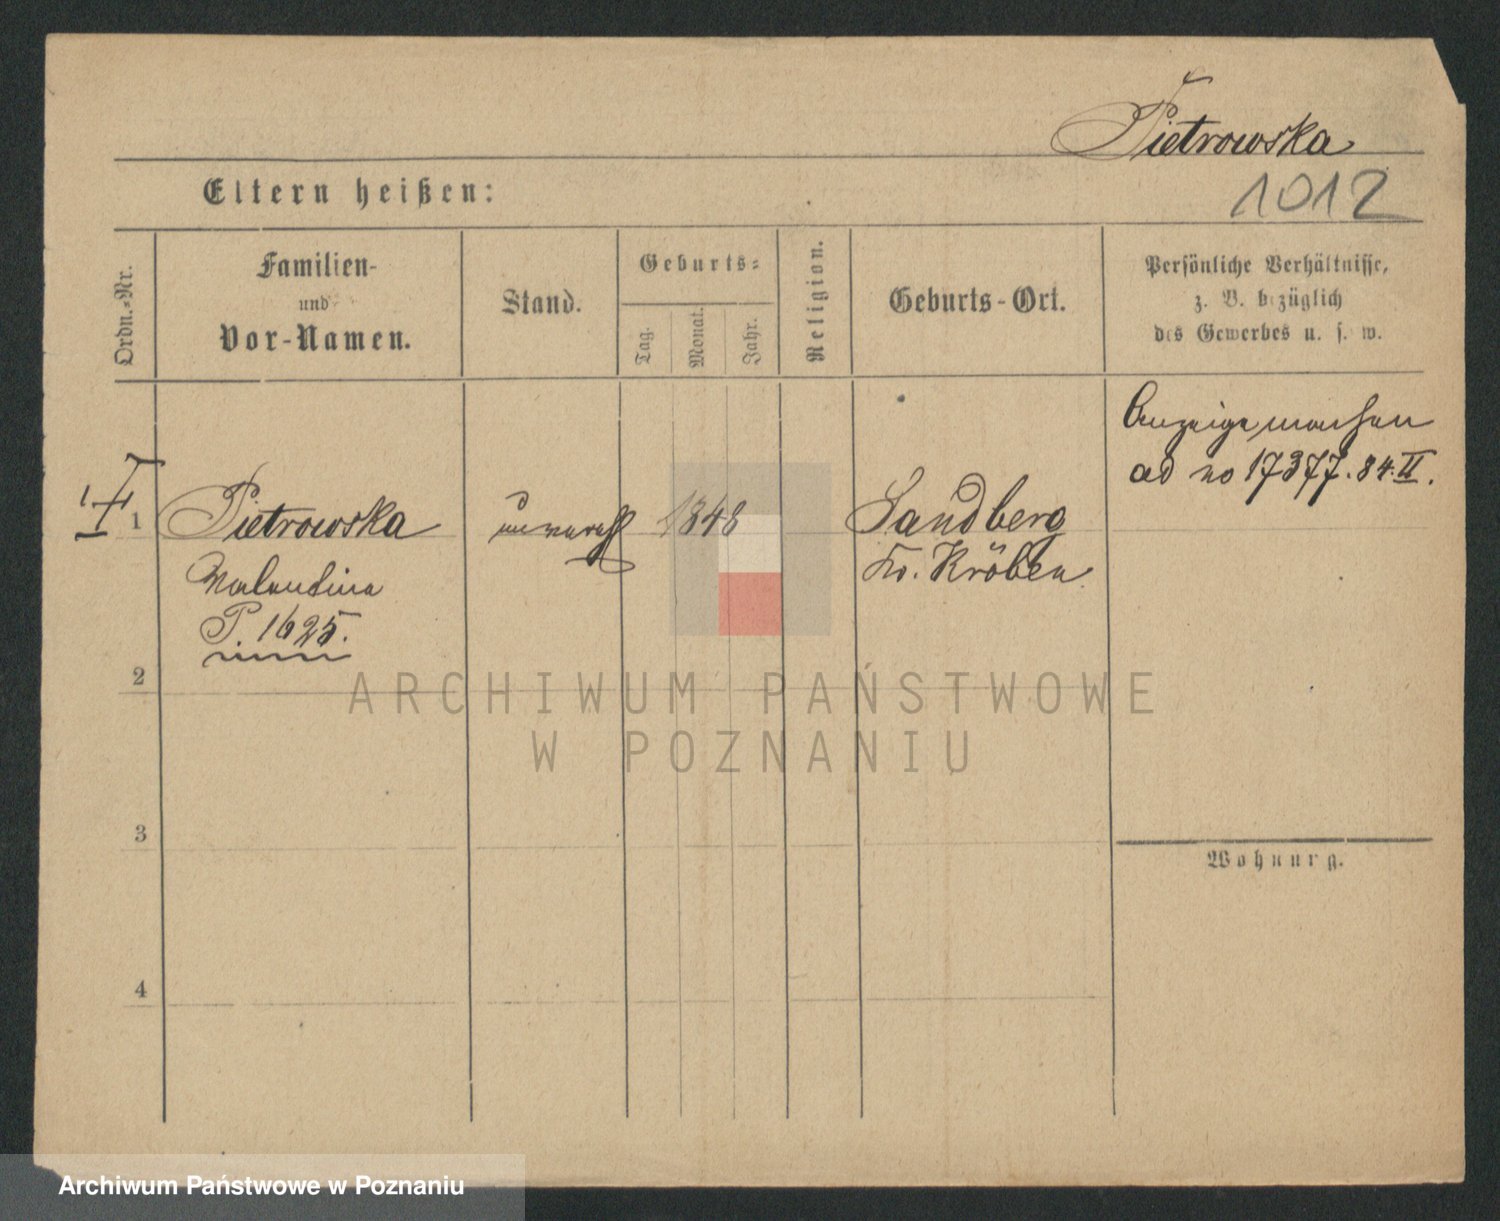 Pietrowska
Eltern heißen:
1012
Ordn.-Nr.
Familien-
und
Vor-Namen.
Stand.
Geburts-
Tag.
Monat.
Jahr.
Religion.
Geburts-Ort.
Persönliche Verhältnisse,
z. B. bezüglich
des Gewerbes u. s. w.
Anzeige machen
ad no 17377.84.II.
1
Pietrowska
unvereh
1848
Sandberg
Valentina
Kr. Kröben
P. 1625.
2
ARCHIWUM PAŃSTWOWE
W POZNANIU
3
Wohnung.
4
Archiwum Państwowe w Poznaniu